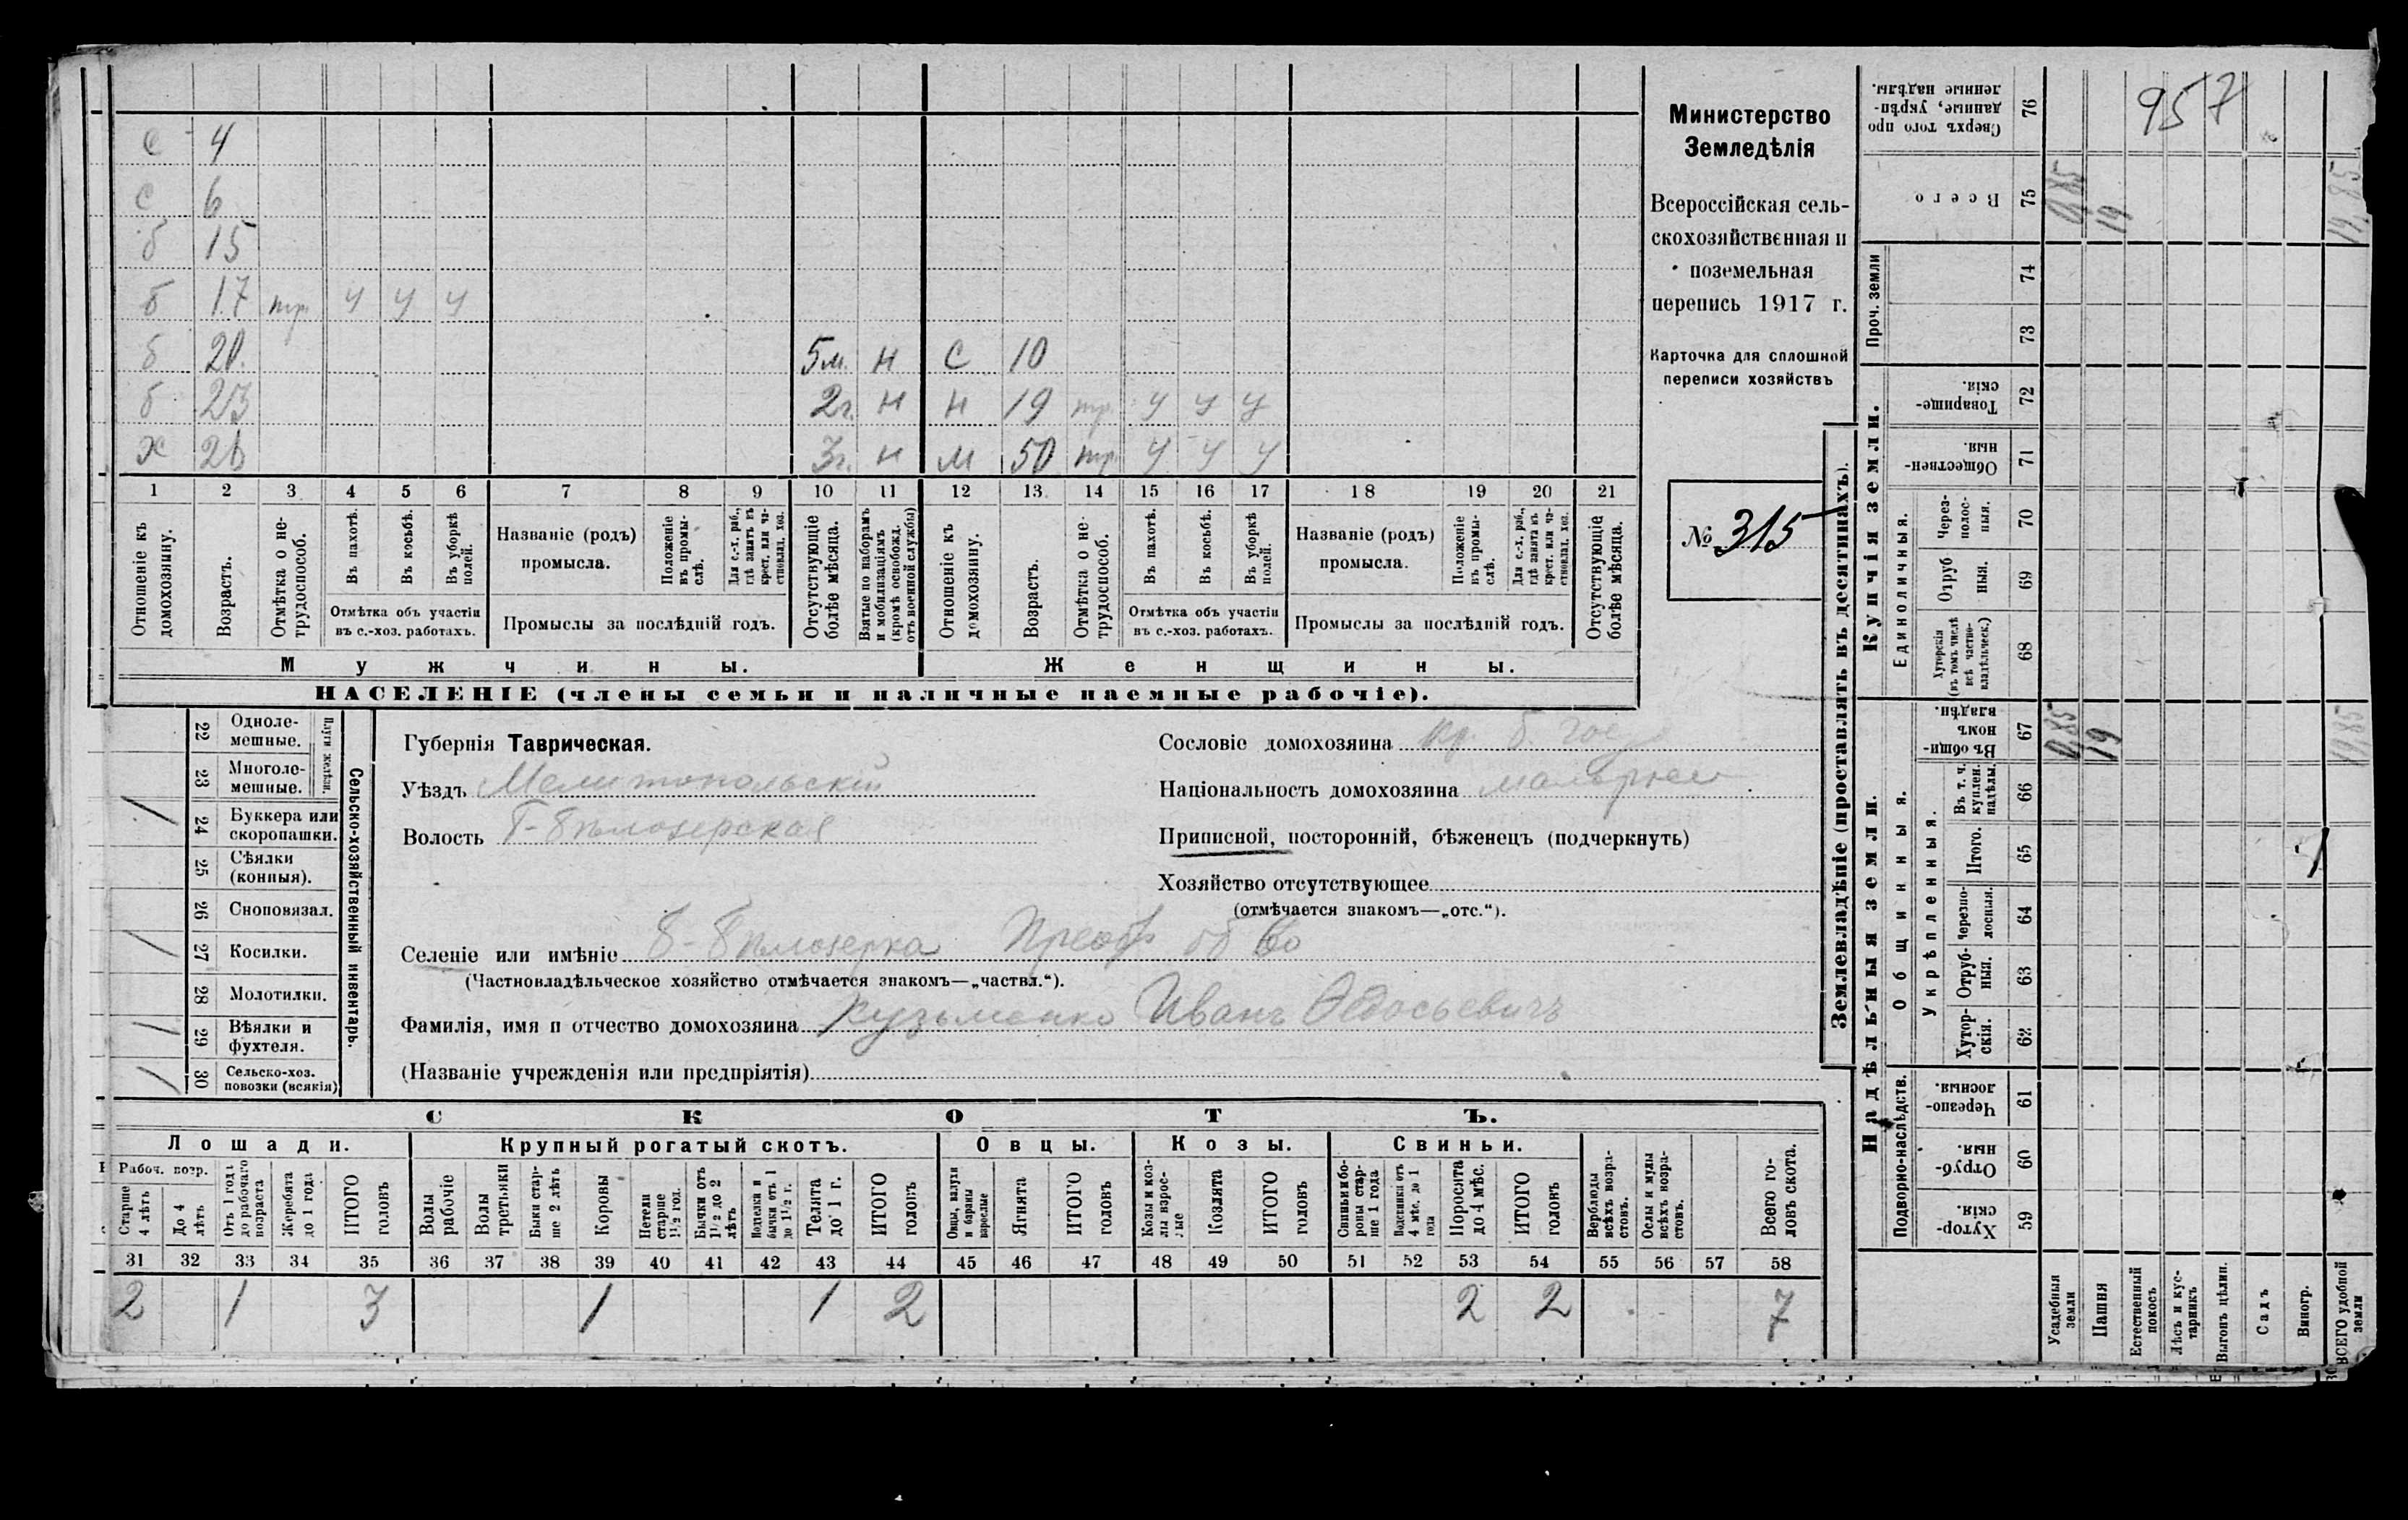 957
С 4
С 6
б 15
б 17 тр. У У У
б 20. 5м. Н С 10
б 23 2г. Н Н 19 тр. У У У
Х 26 3г. Н М 50 тр. У У У
1 2 3 4 5 6 7 8 9 10 11 12 13 14 15 16 17 18 19 20 21
Отношеніе къ домохозяину.
Возрастъ.
Отмѣтка о не-трудоспособ.
Въ пахотѣ.
Въ косьбѣ.
Въ уборкѣ полей.
Отмѣтка объ участіи въ с.-хоз. работахъ.
Названіе (родъ) промысла.
Положеніе въ промы-слѣ.
Для с.-х. раб., гдѣ занятъ въ крест. или ча-стновлад. хоз.
Промыслы за послѣдній годъ.
Отсутствующіе болѣе мѣсяца.
Взятые по наборамъ и мобилизаціямъ (кромѣ освобожд. отъ военной службы)
Отношеніе къ домохозяину.
Возрастъ.
Отмѣтка о не-трудоспособ.
Въ пахотѣ.
Въ косьбѣ.
Въ уборкѣ полей.
Отмѣтка объ участіи въ с.-хоз. работахъ.
Названіе (родъ) промысла.
Положеніе въ промы-слѣ.
Для с.-х. раб., гдѣ занята въ крест. или ча-стновлад. хоз.
Промыслы за послѣдній годъ.
Отсутствующіе болѣе мѣсяца.
Мужчины. Женщины.
НАСЕЛЕНІЕ (члены семьи и наличные наемные рабочіе).
Министерство
Земледѣлія
Всероссійская сель-
скохозяйственная и
поземельная
перепись 1917 г.
Карточка для сплошной
переписи хозяйствъ
№ 315
22 Одноле-мешные.
23 Многоле-мешные.
Плуги желѣзн.
/ 24 Буккера или скоропашки.
25 Сѣялки (конныя).
26 Сноповязал.
/ 27 Косилки.
28 Молотилки.
/ 29 Вѣялки и фухтеля.
/ 30 Сельско-хоз. повозки (всякія)
Сельско-хозяйственный инвентарь.
Губернія Таврическая.
Уѣздъ Мелитопольскій
Волость Б-Бѣлозерская
Сословіе домохозяина кр. б. гос
Національность домохозяина малорус
Приписной, посторонній, бѣженецъ (подчеркнуть)
Хозяйство отсутствующее
(отмѣчается знакомъ—„отс.“).
Селеніе или имѣніе Б-Бѣлозерка Преобр об во
(Частновладѣльческое хозяйство отмѣчается знакомъ—„частвл.“).
Фамилія, имя и отчество домохозяина Кузьменко Иванъ Ѳедосьевичъ
(Названіе учрежденія или предпріятія)
СКОТЪ.
Лошади. Крупный рогатый скотъ. Овцы. Козы. Свиньи.
Рабоч. возр.
Старше 4 лѣтъ
До 4 лѣтъ
Отъ 1 года до рабочаго возраста
Жеребята до 1 года
ИТОГО головъ
Волы рабочіе
Волы третьяки
Быки стар-ше 2 лѣтъ
Коровы
Нетели старше 1½ год.
Бычки отъ 1½ до 2 лѣтъ
Подтелки и бычки отъ 1 до 1½ г.
Телята до 1 г.
ИТОГО головъ
Овцы, валухи и бараны взрослые
Ягнята
ИТОГО головъ
Козы и коз-лы взрос-лые
Козлята
ИТОГО головъ
Свиньи и бо-ровы стар-ше 1 года
Подсвинки отъ 4 мѣс. до 1 года
Поросята до 4 мѣс.
ИТОГО головъ
Верблюды всѣхъ возра-стовъ.
Ослы и мулы всѣхъ возра-стовъ.
Всего го-ловъ скота.
31 32 33 34 35 36 37 38 39 40 41 42 43 44 45 46 47 48 49 50 51 52 53 54 55 56 57 58
2 1 3 1 1 2 2 2 7
Землевладѣніе (проставлять въ десятинахъ).
Сверхъ того про данные, укрѣп-ленные надѣлы. 76
Всего 75 0,85 19 19,85
Проч. земли 74 73
Купчія земли.
Товарище-скія. 72
Обществен-ныя. 71
Единоличныя.
Через-полос-ныя. 70
Отруб ныя. 69
Хуторскія (въ томъ числѣ всѣ частно-владѣльческ.) 68
Надѣльныя земли.
Общинныя.
Въ общи-номъ владѣн. 67 0,85 19 19,85
Укрѣпленныя.
Въ т. ч. куплен. надѣлы. 66
Итого. 65
Черезпо-лосныя. 64
Отруб-ныя. 63
Хутор-скія. 62
Подворно-наслѣдств.
Черезпо-лосныя. 61
Отруб-ныя. 60
Хутор-скія. 59
Усадебныя земли
Пашня
Естественный покосъ
Лѣсъ и кус-тарникъ
Выгонъ цѣлин.
Садъ
Виногр.
ВСЕГО удобной земли